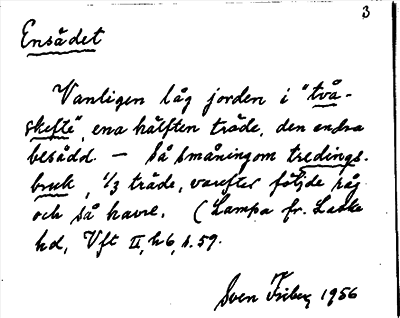 3
Ensädet
Vanligen låg jorden i "två-
skefte", ena hälften träde, den andra
besådd. — Så småningom tredings-
bruk, 1/3 träde, varefter följde råg
och så havre. (Lampa fr. Laske
hd, Vft II, h6, s. 59.
Sven Friberg 1956